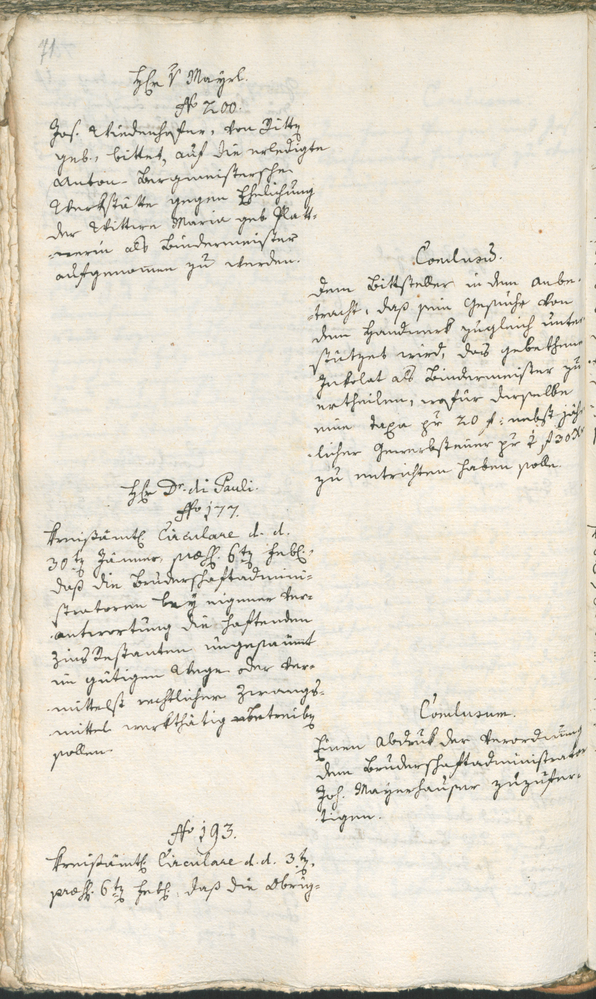 71.
Hr. v Mayrl.
No 200.
Jos. Wiedenhofer, von Ditty
geb. bittet, auf die erledigte
Anton-Bürgmeistersche
Werkstätte gegen Ehelichung
der Wittwe Maria geb Platt-
nerin als Bindermeister
aufgenommen zu werden.
Conclusū.
Dem Bittsteller in dem Anbe-
tracht, daß sein Gesuche von
dem Handwerk zugleich unter-
stützet wird, das gebethene
Inkolat als Bindermeister zu
ertheilen, wofür derselbe
eine Taxa pr 20 f: nebst jähr-
licher Gewerbsteuer pr f 30 x
zu entrichten haben solle.
Hr. Dr. di Pauli.
No 177.
Kreisämtl. Circulare d. d.
30ten Jänner, præs. 6ten Feb:,
daß die Bruderschaftadmini-
stratoren bey eigener Ver-
antwortung die haftenden
Zins Restanten ungesäumt
im gütigen Wege oder ver-
mittelst rechtlicher Zwangs-
mittel werkthätig abtreiben
sollen.
Conclusum.
Einen Abdruk der Verordnung
dem Bruderschaftadministrator
Joh. Mayrhauser zuzufer-
tigen.
No 193.
Kreisämtl. Circulare d. d. 3ten,
præs. 6ten Feb., daß die Obrig-